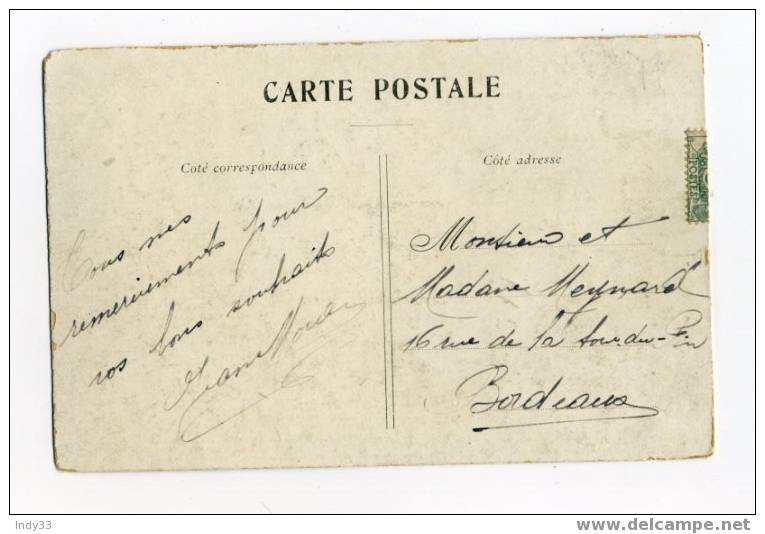 CARTE POSTALE
Coté correspondance
Tous mes
remerciements pour
vos bons souhaits
Côté adresse
POSTES
Monsieur et
Madame Meynard
16 rue de la Tour-du-Pin
Bordeaux
Indy33
www.delcampe.net